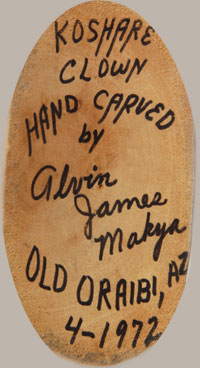 KOSHARE
CLOWN
HAND CARVED
by
Alvin
James
Makya
OLD ORAIBI, AZ
4-1972